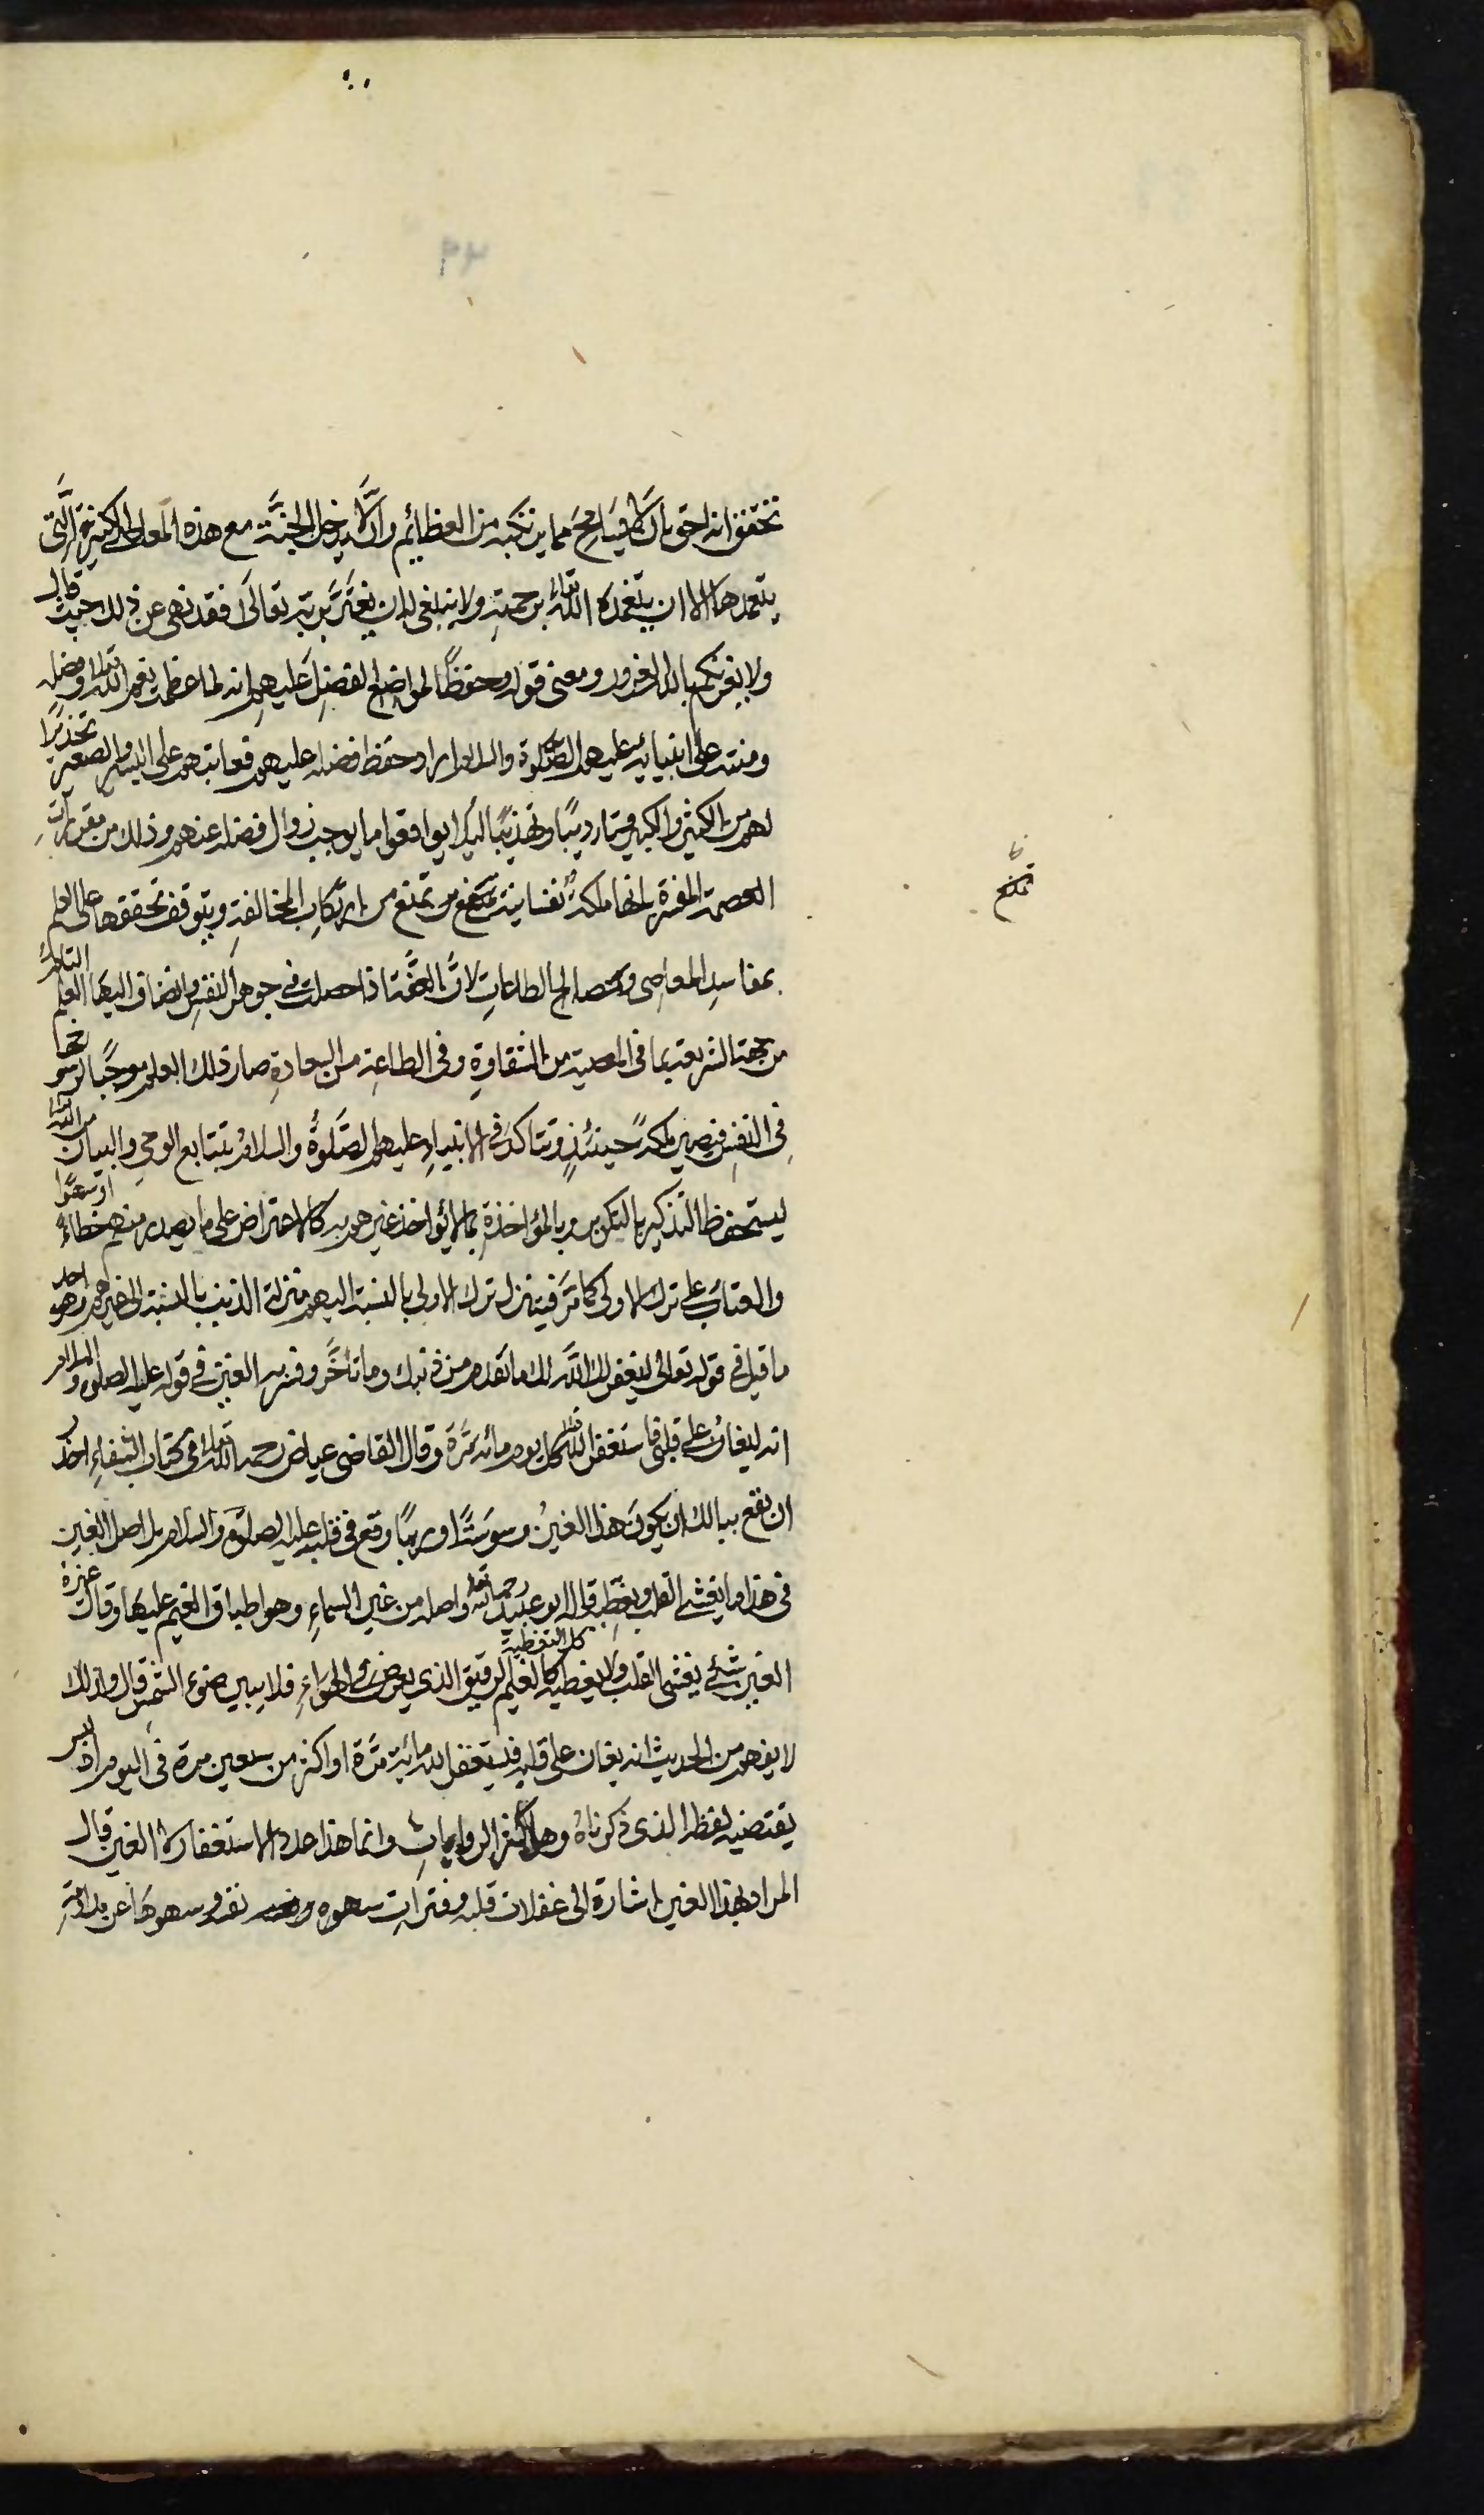 تحقق انه احق بان لا يسامح مما يرتكبه من العظائم وان لا يدخل الجنة مع هذه المعاصى الكثيرة التى
يتعمدها الا ان يتغمده الله تعالى برحمته ولا ينبغى له ان يغتر بربه تعالى فقد نهى عن ذلك حيث قال
ولا يغرنكم بالله الغرور ومعنى قوله وحفظا لمواضع الفضل عليهم انه لما عظمت نعم الله تعالى وفضله
ومنته على انبيائه عليهم الصلوة والسلام اراد حفظ فضله عليهم فعاتبهم على اليسير والصغير تحذيرا
لهم من الكثير والكبير وتاديبا وتهذيبا ليلا يواقعوا ما يوجب زوال فضله عنهم وذلك من مقررات
العصمة المفسرة بانها ملكة نفسانية تمنع من ارتكاب المخالفة ويتوقف تحققها على العلم
بمفاسد المعاصى ومصالح الطاعات لان العفة اذا حصلت فى جوهر النفس وانضاف اليها العلم التام
من جهة الشريعة بما فى المعصية من الشقاوة وفى الطاعة من السعادة صار ذلك العلم موجبا لرسوخها
فى النفس فيصير ملكة حينئذ وتتاكد فى الانبياء عليهم الصلوة والسلام بتتابع الوحى والبيان من الله تعالى
ليستحفظ التذكير بالتكرير وبالمؤاخذة بما لا يؤاخذ غيرهم به كالاعتراض على ما يصدر منهم خطاء او سهوا
والعتاب على ترك الاولى كما مر فينزل ترك الاولى بالنسبة اليهم منزلة الذنب بالنسبة الى غيرهم وهو احد
ما قيل فى قوله تعالى ليغفر لك الله ما تقدم من ذنبك وما تاخر وفسر به الغين فى قوله عليه الصلوة والسلام
انه ليغان على قلبى فاستغفر الله تعالى كل يوم مائة مرة وقال القاضى عياض رحمه الله تعالى فى كتاب الشفاء احذر
ان يقع ببالك ان يكون هذا الغين وسوسة او ريبا وقع فى قلبه عليه الصلوة والسلام بل اصل الغين
فى هذا ما يغشى القلب ويغطيه قاله ابو عبيد رحمه الله تعالى واصله من غين السماء وهو اطباق الغيم عليها وقال غيره
الغين شئ يغشى القلب ولا يغطيه كل التغطية كالغيم الرقيق الذى يعرض فى الهواء فلا يبين ضوء الشمس قال وكذلك
لا يفهم من الحديث انه يغان على قلبه فيستغفر الله مائة مرة او اكثر من سبعين مرة فى اليوم اذ ليس
يقتضيه لفظه الذى ذكرناه وهو اكثر الروايات وانما هذا عدد الاستغفار لا الغين قال
المراد بهذا الغين اشارة الى غفلات قلبه وفترات سهوه نفسه وسهوها عن مداومة